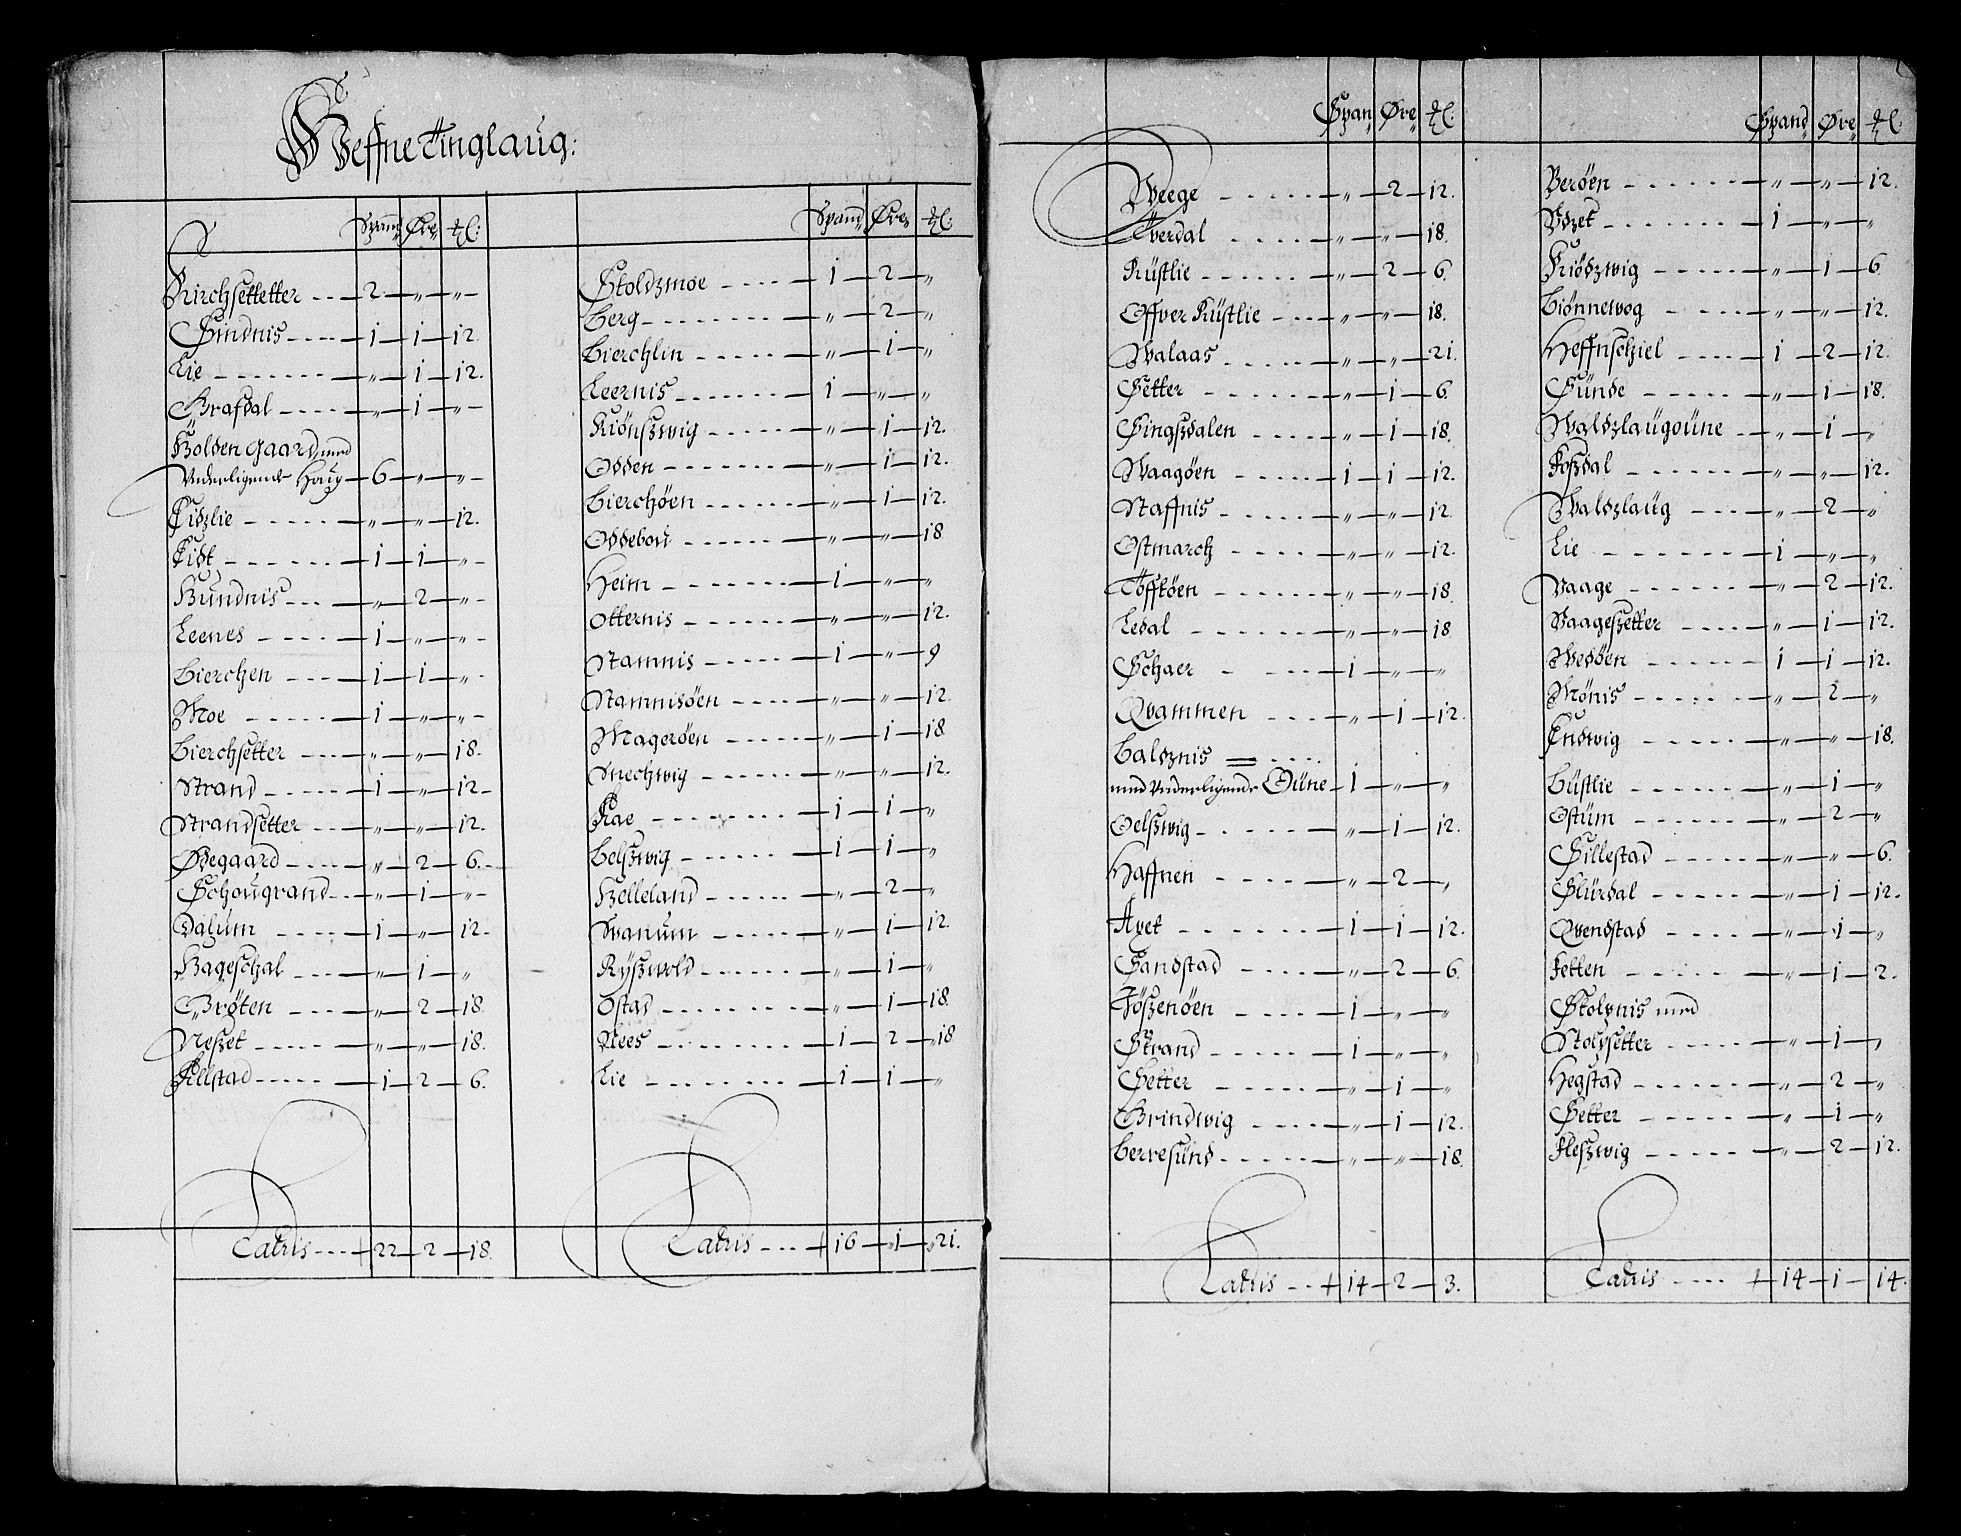 Heffne Tinglaug:
Spand Øre ₰:
Kirchsettetter - - - 2 — „ — „ —
Sindnis - - - - 1 — 1 — 12.
Lie - - - - - „ — 1 — 12.
Grafdal - - - - „ — 1 — „ —
Holden Gaard, med
Underligende Haug — 6 — „ — „ —
Lidzlie - - - - - „ — „ — 12.
Eidt - - - - - 1 — 1 — „ —
Hundnis - - - „ — 2 — „ —
Leenes - - - - 1 — „ — „ —
Bierchen - - - 1 — 1 — „ —
Moe - - - - - 1 — „ — „ —
Bierchsetter - - - - „ — „ — 18.
Strand - - - - - 1 — „ — 12 —
Strandsetter - - - „ — „ — 12.
Ødegaard - - - - „ — 2 — 6. —
Schougrand - - - „ — 1 — „ —
Dalum - - - - 1 — „ — 12 —
Hageschal - - - - „ — 1 — „
Brøten - - - - „ — 2 — 18.
Neszet - - - - - „ — „ — 18.
Fillstad - - - - - 1 — 2 — 6.
Latris - - - 22 — 2 — 18.
Spand Øre ₰:
Stoldzmoe - - - - - 1 — 2 — „
Berg - - - - - - - „ — 2 — „
Bierchlin - - - - - - „ — 1 — „
Leernis - - - - - - 1 — „ — „
Kiönszwig - - - - - „ — 1 — 12.
Odden - - - - - - - „ — 1 — 12.
Bierchöen - - - - - „ — 1 — 12.
Oddebou - - - - - - „ — „ — 18
Heim - - - - - - - 1 — „ — „
Otternis - - - - - - „ — „ — 12.
Stamnis - - - - - 1 — „ — 9
Stamnisöen - - - - „ — „ — 12.
Magerøen - - - - - „ — 1 — 18
Snechwig - - - - - - „ — „ — 12.
Kae - - - - - - - 1 — 1 — „
Belszwig - - - - - - 1 — 1 — „
Helleland - - - - - - „ — 2 — „
Svanum - - - - - - „ — 1 — 12.
Ryszwold - - - - - - „ — 1 — „
Ostad - - - - - - - „ — 1 — 18.
Nees - - - - - - - 1 — 2 — „18
Lie - - - - - - - 1 — 1 — „
Latris - - - - 16 — „1 — „21.
Span Øre ₰:
Weege - - - - - „ — 2 — 12.
Tverdal - - - - - „ — „ — 18.
Rüstlie - - - - - - „ — 2 — 6.
Offver Rüstlie - - - „ — „ — 18.
Walaas - - - - - - „ — „ — 21.
Setter - - - - - - „ — 1 — 6.
Singszdalen - - - - „ — 1 — 18.
Waagöen - - - - - 1 — 1 — 12.
Staffnis - - - - - - „ — „ — 12.
Ostmarch - - - - „ — „ — 12.
Töfftöen - - - - - - „ — „ — 18.
Ledal - - - - - - - „ — „ — 18
Schaer - - - - - 1 — „ — „
Qvammen - - - - „ — 1 — 12.
Baldznis = - - - -
med Underligende Øüne — 1 — „ — „
Oelszwig - - - - - - „ — 1 — 12.
Haffnen - - - - - „ — 2 — „
Ayet - - - - - - 1 — 1 — 12.
Sandstad - - - - - „ — 2 — 6.
Jöszenöen - - - - - 1 — „ — „
Strand - - - - - 1 — „ — „
Setter - - - - - - „ — 1 — „
Grindwig - - - - - „ — 1 — 12.
Berresünd - - - - - - „ — „ — 18.
Latris - - - 14 — 2 — 3.
Spand Øre ₰:
Berøen - - - - - - „ — „ — 12.
Udzet - - - - - - 1 — „ — „
Kiödzwig - - - - - - „ — 1 — 6
Biönnewog - - - - „ — „ — 12.
Heffnschiel - - - - 1 — 2 — 12.
Sünde - - - - - „ — 1 — 18.
Waldzlaugoüne - - „ — 1 — „
Foszdal - - - - - - „ — „ — 12.
Waldzlaug - - - - „ — 2 — „
Lie - - - - - - 1 — „ — „
Vaage - - - - - - „ — 2 — 12.
Vaageszetter - - - - „ — 1 — 12.
Wedöen - - - - - 1 — 1 — 12.
Mønis - - - - - - „ — 2 — „
Endwig - - - - - „ — „ — 18.
Büstlie - - - - - - „ — 1 — „
Ostüm - - - - - - „ — 2 — „
Sillestad - - - - - „ — „ — 6.
Slürdal - - - - - - „ — 1 — 12.
Qvendstad - - - - „ — 1 — „
Fetten - - - - - - „ — 1 — 2.
Stolpnis med
Stolpsetter - - - - - „ — 1 — „
Hegstad - - - - - - „ — 2 — „
Setter - - - - - - „ — 1 — „
Fleszwig - - - - - - „ — 2 — 12.
Latris - - - - 14 — 1 — 14.